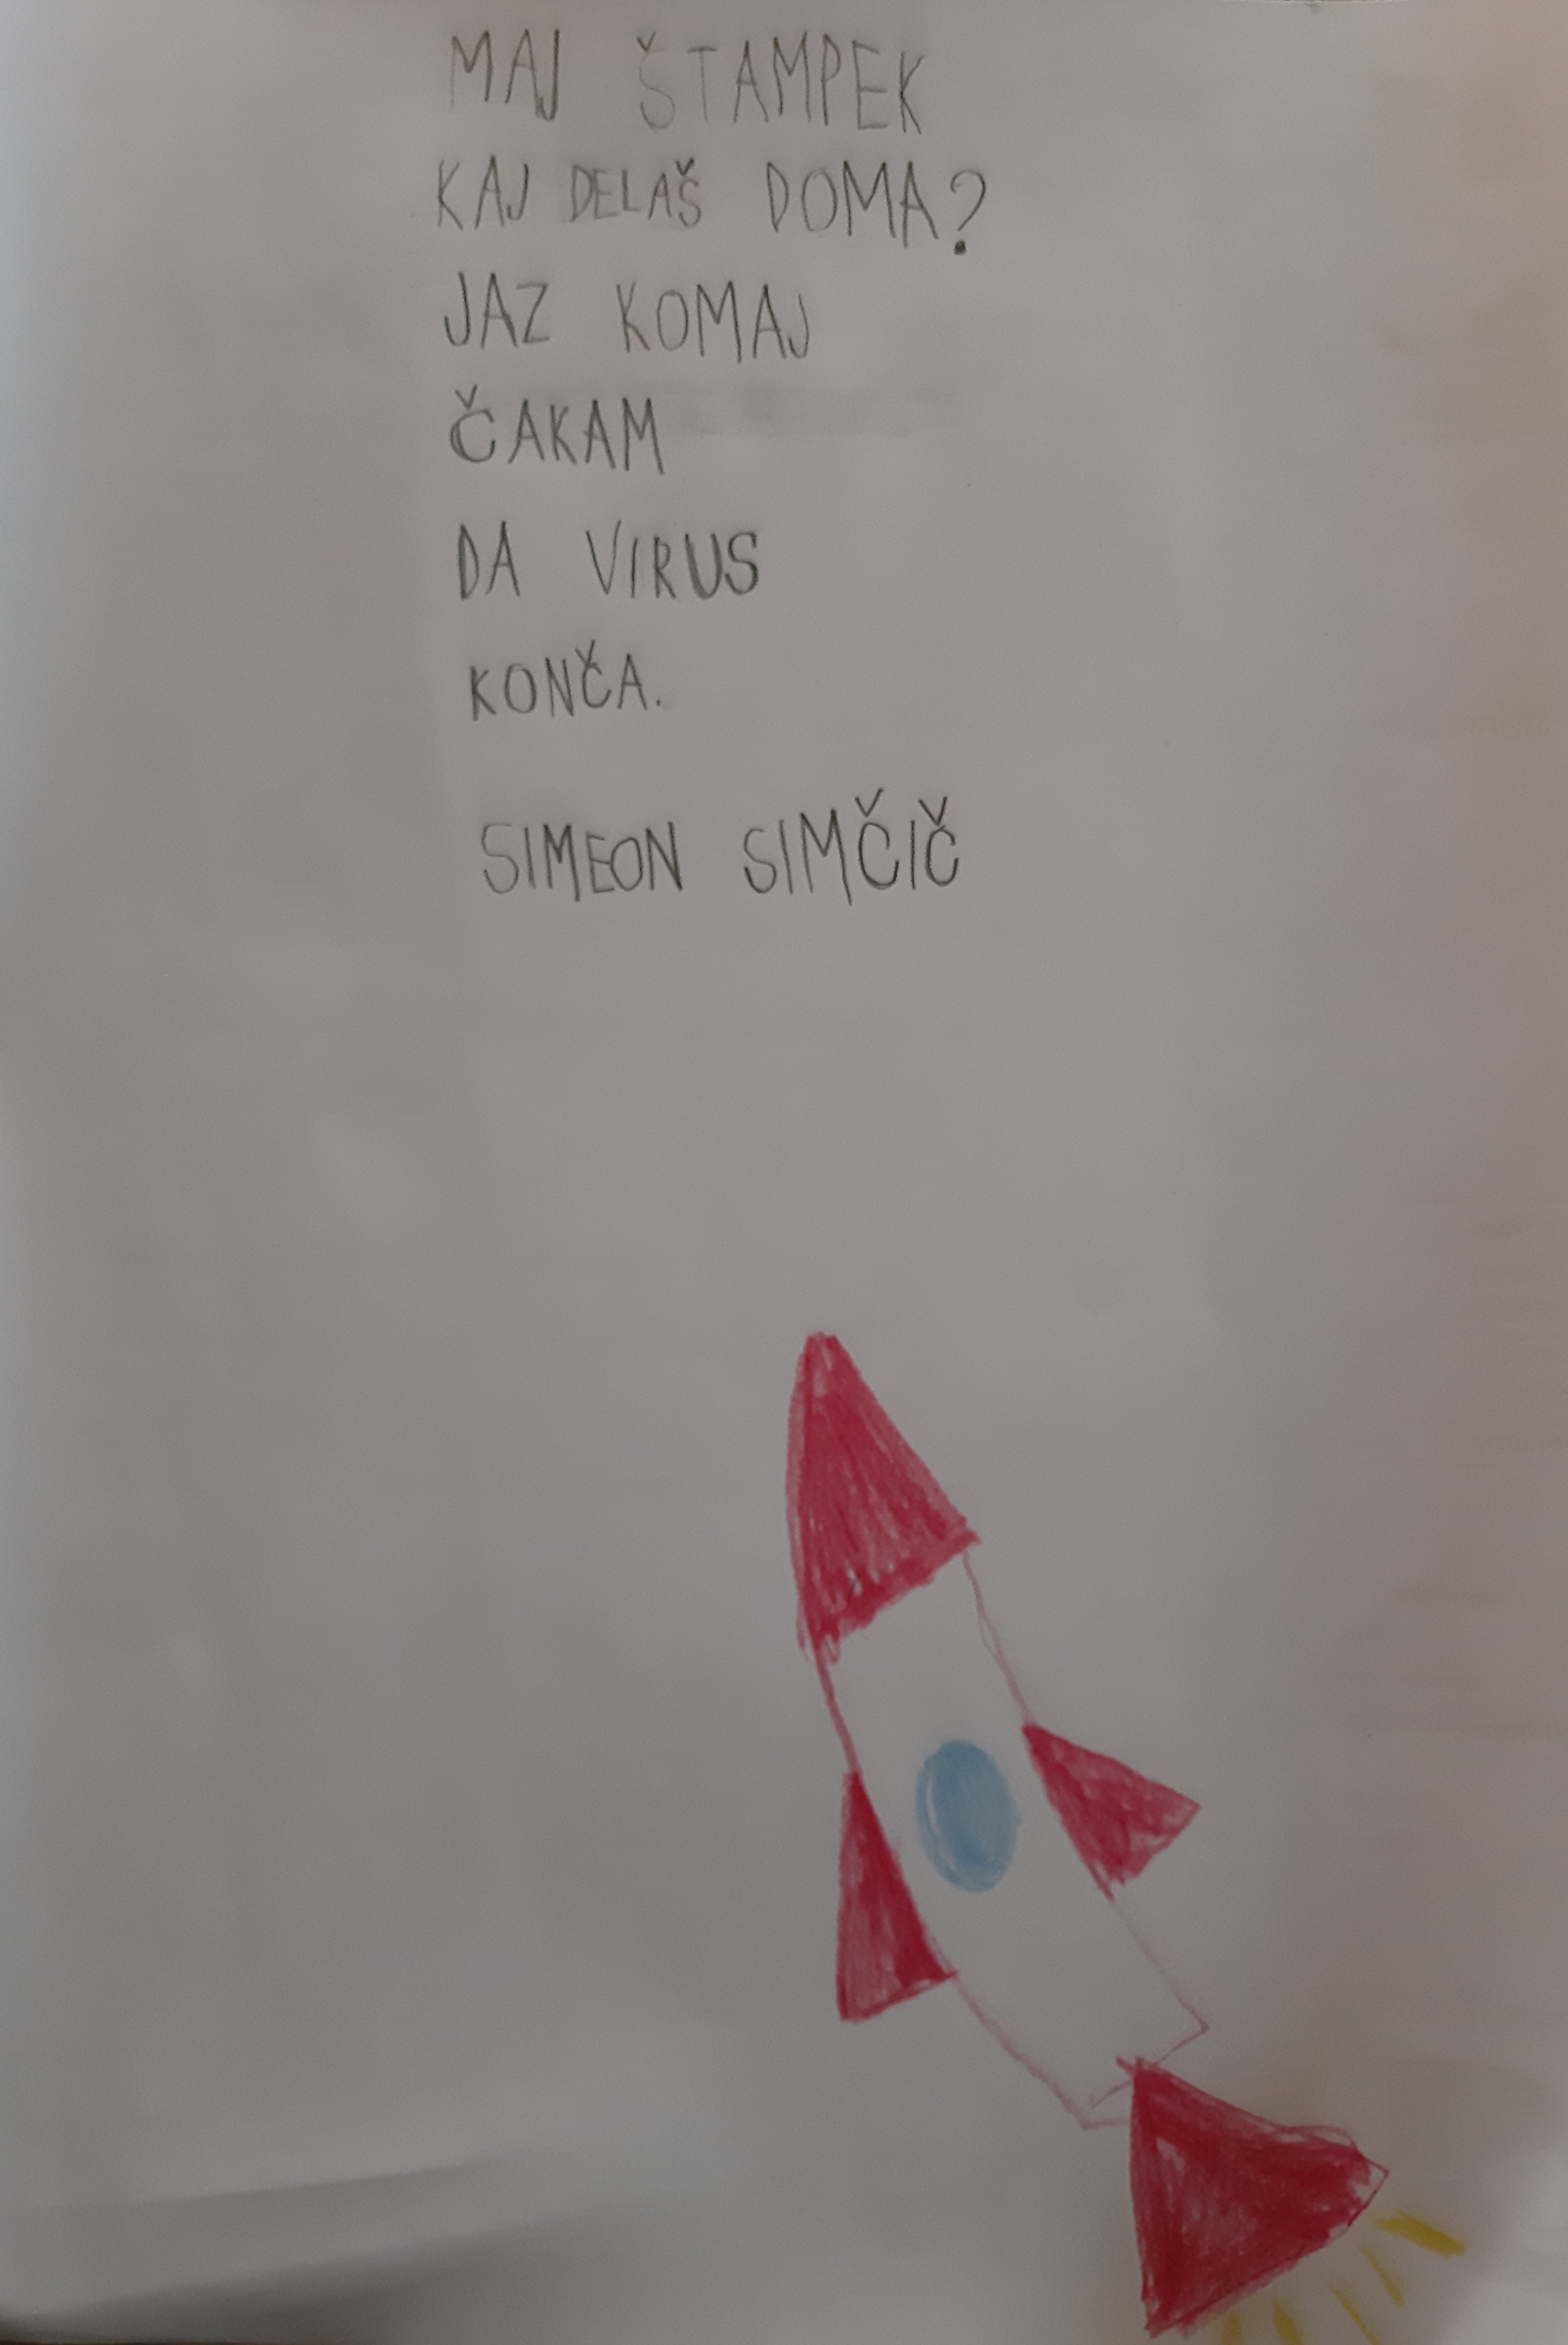 MAJ ŠTAMPEK
KAJ DELAŠ DOMA?
JAZ KOMAJ
ČAKAM
DA VIRUS
KONČA.
SIMEON SIMČIČ